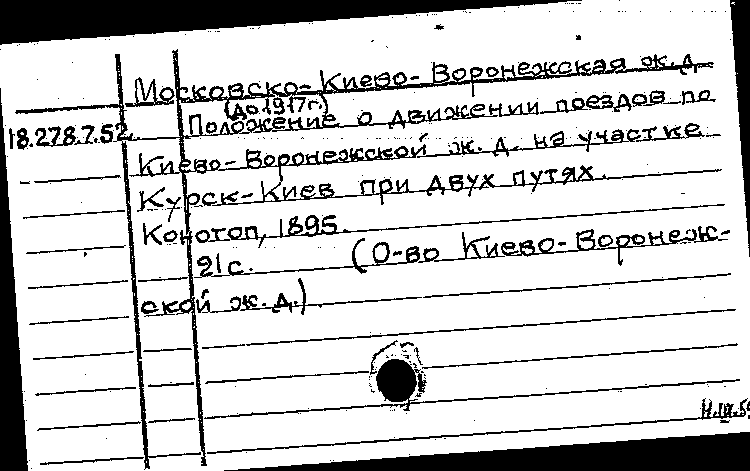 Московско-Киево-Воронежская ж.д.
(до 1917г.)
18.278.7.52. Положение о движении поездов по
Киево-Воронежской ж.д. на участке
Курск-Киев при двух путях.
Конотоп, 1895.
21с. (О-во Киево-Воронеж-
ской ж.д.).